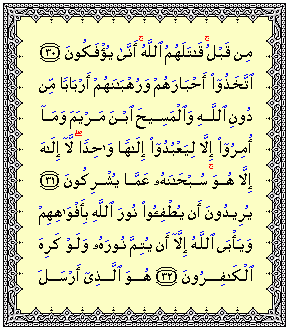 مِن قَبْلُ ۚ قَـٰتَلَهُمُ ٱللَّهُ ۚ أَنَّىٰ يُؤْفَكُونَ ﴿٣٠﴾
ٱتَّخَذُوٓا۟ أَحْبَارَهُمْ وَرُهْبَـٰنَهُمْ أَرْبَابًا مِّن
دُونِ ٱللَّهِ وَٱلْمَسِيحَ ٱبْنَ مَرْيَمَ وَمَآ
أُمِرُوٓا۟ إِلَّا لِيَعْبُدُوٓا۟ إِلَـٰهًا وَٰحِدًا ۖ لَّآ إِلَـٰهَ
إِلَّا هُوَ ۚ سُبْحَـٰنَهُۥ عَمَّا يُشْرِكُونَ ﴿٣١﴾
يُرِيدُونَ أَن يُطْفِـُٔوا۟ نُورَ ٱللَّهِ بِأَفْوَٰهِهِمْ
وَيَأْبَى ٱللَّهُ إِلَّآ أَن يُتِمَّ نُورَهُۥ وَلَوْ كَرِهَ
ٱلْكَـٰفِرُونَ ﴿٣٢﴾ هُوَ ٱلَّذِىٓ أَرْسَلَ